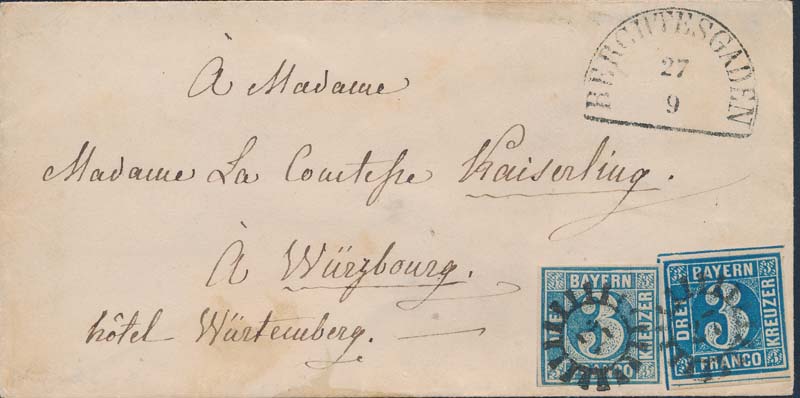 À Madame
Madame La Comtesse Kaiserling.
À Würzbourg.
hôtel Würtemberg. —
BERCHTESGADEN
27
9
BAYERN
3
KREUZER
FRANCO
BAYERN
DREI
3
KREUZER
FRANCO